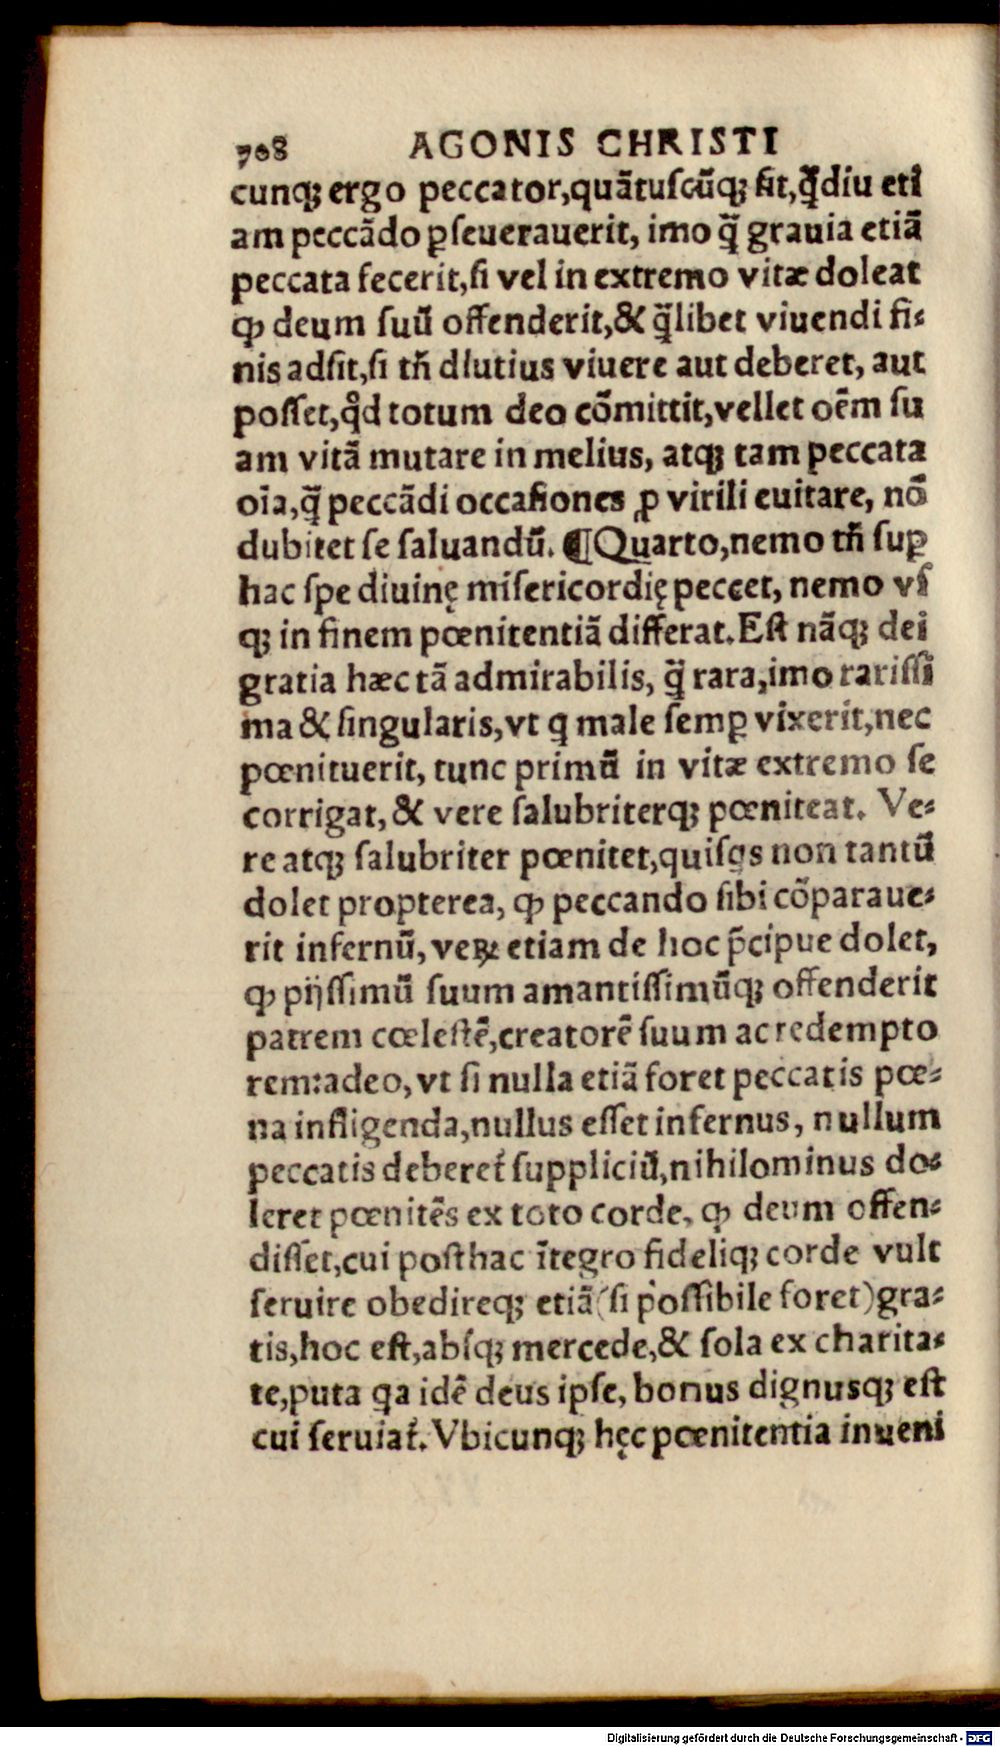 708 AGONIS CHRISTI
cunqꝫ ergo peccator,quātuſcūqꝫ ſit,q̄diu eti
am peccādo ꝑſeuerauerit, imo q̄ grauia etiā
peccata fecerit,ſi vel in extremo vitæ doleat
ꝙ deum ſuū offenderit,& q̄libet viuendi fi⸗
nis adſit,ſi tñ diutius viuere aut deberet, aut
poſſet,qd̓ totum deo cōmittit,vellet oēm ſu
am vitā mutare in melius, atqꝫ tam peccata
oīa,q̄ peccādi occaſiones ꝓ virili euitare, nō
dubitet ſe ſaluandū. ¶Quarto,nemo tñ ſuꝑ
hac ſpe diuinę miſericordię peccet, nemo vſ
qꝫ in finem pœnitentiā differat.Eſt nāqꝫ dei
gratia hæc tā admirabilis, q̄ rara,imo rariſſi
ma & ſingularis,vt ꝗ male ſemꝑ vixerit,nec
pœnituerit, tunc primū in vitæ extremo ſe
corrigat, & vere ſalubriterqꝫ pœniteat. Ve⸗
re atqꝫ ſalubriter pœnitet,quiſꝗs non tantū
dolet propterea, ꝙ peccando ſibi cōparaue⸗
rit infernū, veꝝ etiam de hoc p̄cipue dolet,
ꝙ pijſſimū ſuum amantiſſimūqꝫ offenderit
patrem cœleſtē,creatorē ſuum ac redempto
rem:adeo, vt ſi nulla etiā foret peccatis pœ⸗
na infligenda,nullus eſſet infernus, nullum
peccatis deberet᷑ ſuppliciū,nihilominus do⸗
leret pœnitēs ex toto corde, ꝙ deum offen⸗
diſſet,cui poſthac ītegro fideliqꝫ corde vult
ſeruire obedireqꝫ etiā(ſi poſſibile foret)gra⸗
tis,hoc eſt,abſqꝫ mercede,& ſola ex charita⸗
te,puta ꝗa idē deus ipſe, bonus dignusqꝫ eſt
cui ſeruiat᷑. Vbicunqꝫ hęc pœnitentia inueni
Digitalisierung gefördert durch die Deutsche Forschungsgemeinschaft - DFG